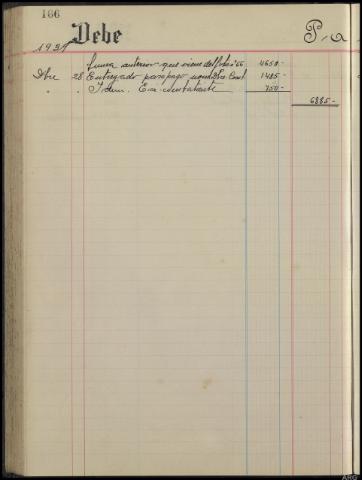 166
Debe
P. a
1934
Suma anterior que viene del folio 66 4650-
Dbre 28 Entregado para pago 1485-
" " Idem. Ex-contratante 750-
6885-
ARG